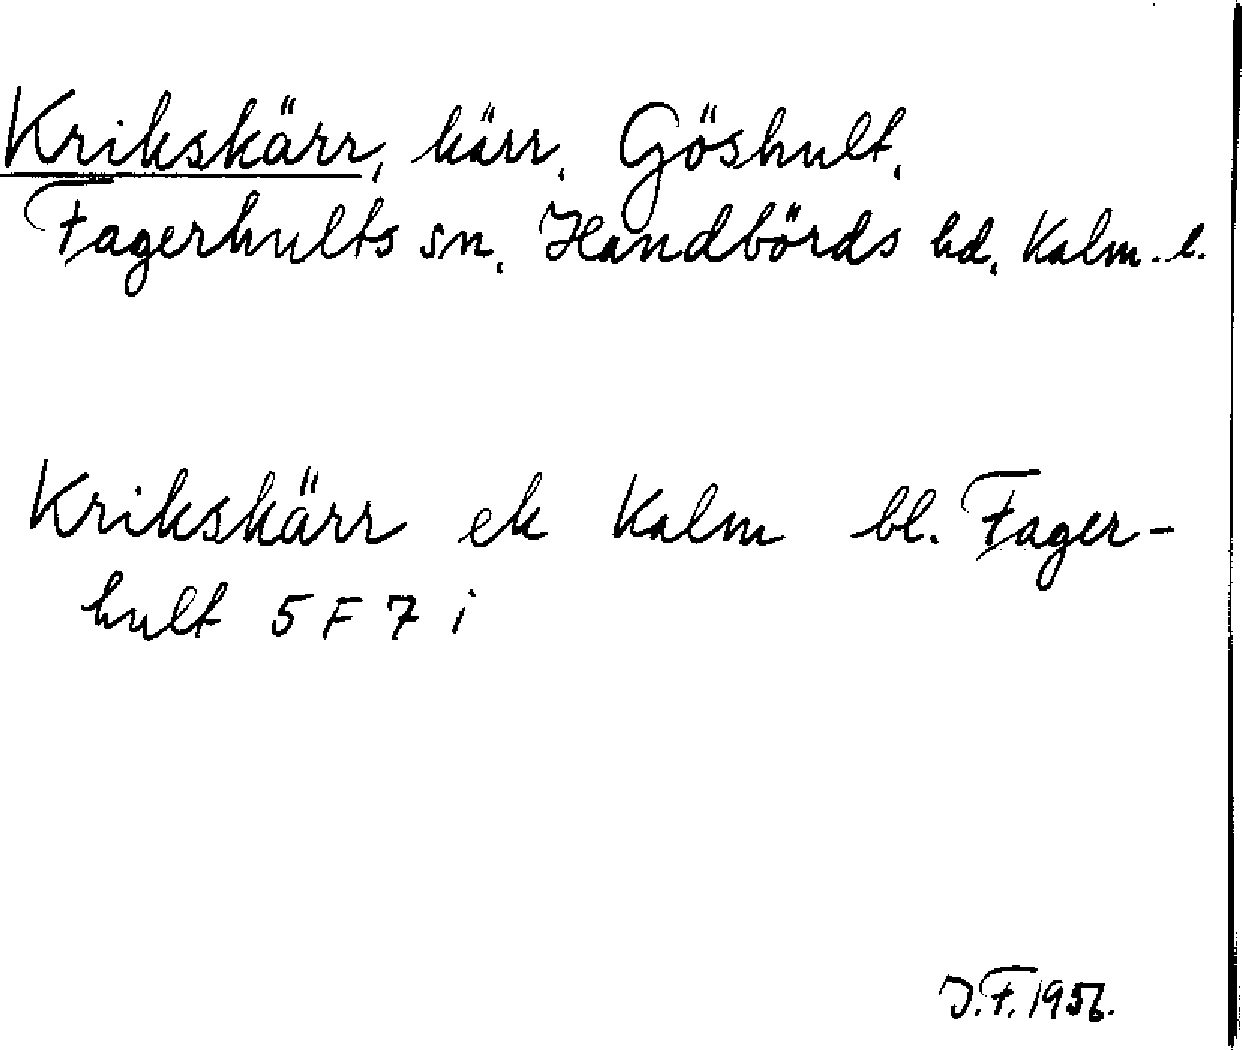 Krikskärr, kärr, Göshult,
Fagerhults sn, Handbörds hd, Kalm. l.
Krikskärr ek Kalm bl. Fager-
hult 5 F 7 i
J.F. 1956.